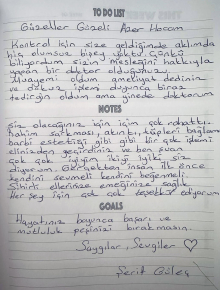 TO DO LIST
Güzeller Güzeli Azer Hocam
Kontrol için size geldiğinde aklımda
hiç olumsuz bişey yoktu çünkü
biliyordum sizin mesleğini hakkıyla
yapan bir doktor olduğunuzu.
Muayeni oldum ameliyat dediniz
ve dikiş işlemi duyunca biraz
tedirgin oldum ama yinede doktorum
NOTES
siz olacağınız için içim çok rahattı.
alıntı, tüpleri bağlama
barbi estetiği gibi gibi bir çok işlemi
elinizden geçirdiniz ve ben şuan
çok çok iyiyim ikiyi iyiki siz
diyorum. Gerçekten insan ilk önce
kendini sevmeli kendini beğenmeli.
Sihirli ellerinize emeğinize sağlık
Her şey için çok çok teşekkür ediyorum
GOALS
Hayatınız boyunca başarı ve
mutluluk peşinizi bırakmasın.
Saygılar, Sevgiler ♡
Ferit Güleç